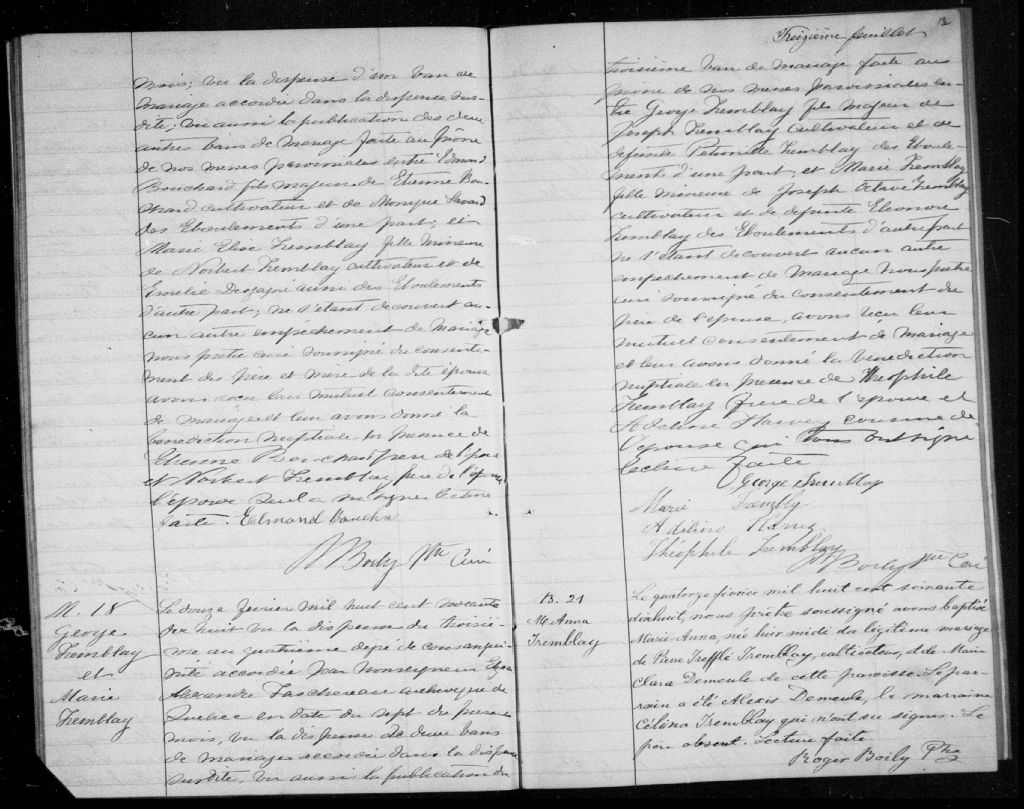 mois; vu la dispense d'un ban de
mariage accordée dans la dispense sus-
dite; vu aussi la publication des deux
autres bans de mariage faite au prône
de nos messes paroissiales entre Edmond
Bouchard fils majeur de Etienne Bou-
chard cultivateur et de Monique Savard
des Eboulements d'une part; et
Marie Elise Tremblay fille mineure
de Norbert Tremblay cultivateur et de
Emelie Desgagné aussi des Eboulements
d'autre part; ne s'étant découvert au-
cun autre empechement de Mariage
nous prêtre curé soussigné du consente-
ment des père et mère de la dite épouse
avons reçu leur mutuel consentement
de mariage et leur avons donné la
bénédiction nuptiale en présence de
Etienne Bouchard père de l'époux
et Norbert Tremblay père de l'épouse
l'époux seul a su signer lecture
faite. Edmond Bouchar
Boily Ptre Curé
M. 18
George
Tremblay
et
Marie
Tremblay
Le douze février mil huit cent soixante
dix huit vu la dispense du troisiè-
me au quatrième degré de consangui-
nité accordée par Monseigneur Elzéar
Alexandre Taschereau archevêque de
Québec en date du sept du présent
mois, vu la dispense de deux bans
de mariage accordée dans la dispense
susdite, vu aussi la publication du
13
Treizième feuillet
troisième ban de mariage faite au
prone de nos messes paroissiales en-
tre George Tremblay fils majeur de
Joseph Tremblay cultivateur et de
defunte Pétronille Tremblay des Eboule-
ments d'une part; et Marie Tremblay
fille mineure de Joseph Octave Tremblay
cultivateur et de defunte Eleonore
Tremblay des Eboulements d'autre part
ne s'étant découvert aucun autre
empechement de mariage nous prêtre
curé soussigné du consentement du
père de l'épouse, avons reçu leur
mutuel consentement de mariage
et leur avons donné la bénédiction
nuptiale en présence de Théophile
Tremblay frère de l'époux et
Adeline Harvey cousine de
l'épouse qui tous ont signé
lecture faite
George Tremblay
Marie Trembly
Adiline Harvey
Théophile Tremblay
Boily Ptre Curé
B. 21
M. Anna
Tremblay
Le quatorze février mil huit cent soixante
dixhuit, nous prêtre soussigné avons baptisé
Marie Anna, née hier midi du légitime mariage
de Pierre Trefflé Tremblay, cultivateur, et de Marie
Clara Demeule de cette paroisse. Le par-
rain a été Alexis Demeule, la marraine
Célina Tremblay qui n'ont su signer. Le
père absent. Lecture faite.
Roger Boily Ptre